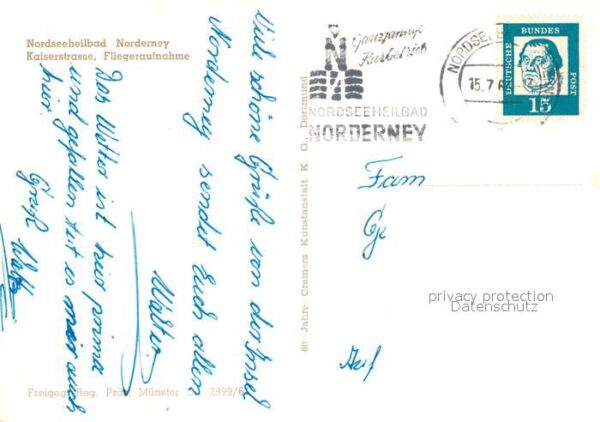 Nordseeheilbad Norderney
Kaiserstrasse, Fliegeraufnahme
Viele schöne Grüße von der Insel
Norderney sendet Euch allen
Walter.
Das Wetter ist hier prima
und gefallen tut es mir auch
hier.
Gruß Walter
Freigeg. Reg. Präs. Münster
2899/6
60 Jahre Cramers Kunstanstalt K. G., Dortmund
Ganzjährig
Kurbetrieb
NORDSEEHEILBAD
NORDERNEY
15.7.6
DEUTSCHE BUNDES POST
15
Fam
Ge
Auf
privacy protection
Datenschutz